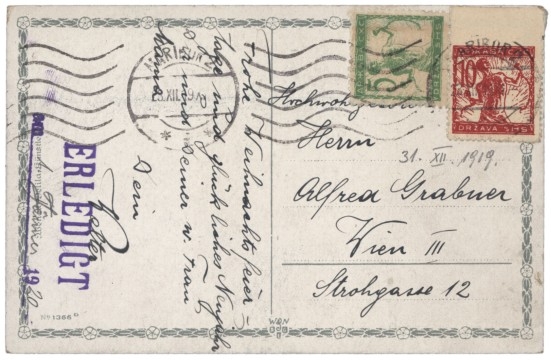 Frohe Weihnachtsfeier-
tage und glückliches Neujahr
Dir und Deiner w. Frau
Mama
Dein
Peter
ERLEDIGT
am
1920
No 1366
W.R.N
MARIBOR
XII. 19
5
10
DRŽAVA SHS
Hochwohlgeboren
Herrn
31. XII. 1919.
Alfred Grabner
Wien III
Strohgasse 12